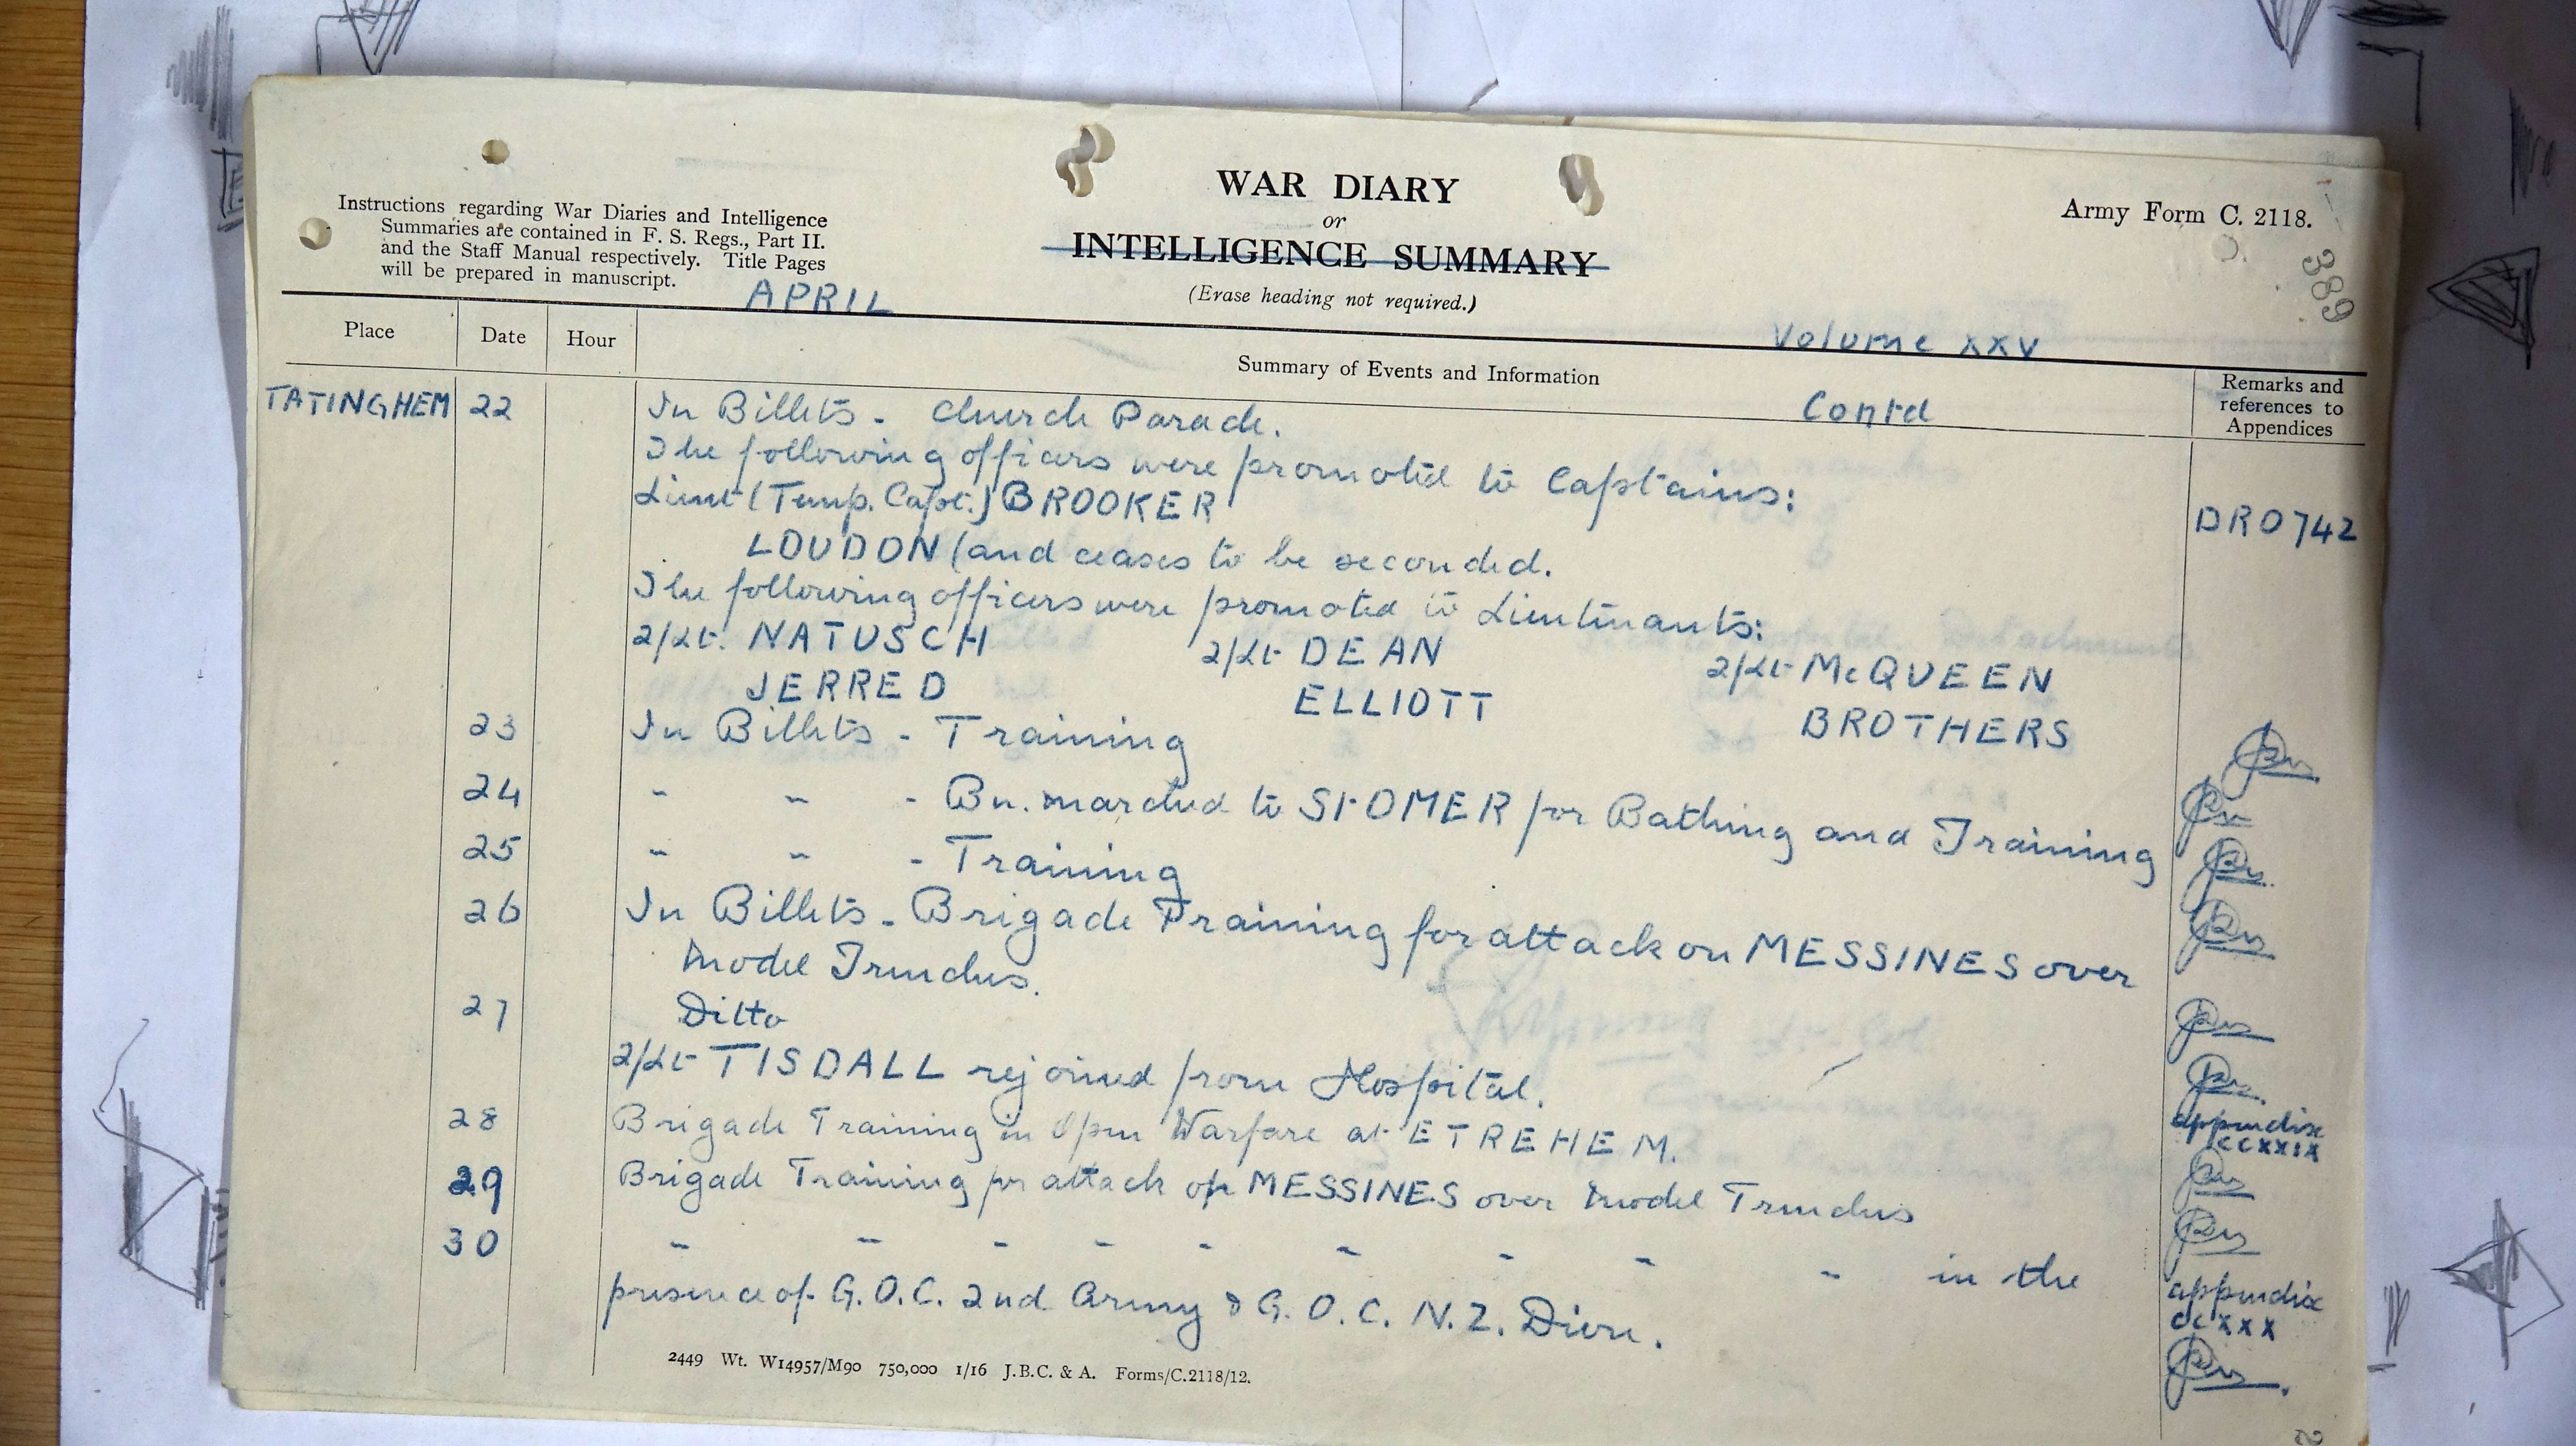 WAR DIARY
or
INTELLIGENCE SUMMARY
(Erase heading not required.)
Instructions regarding War Diaries and Intelligence
Summaries are contained in F. S. Regs., Part II.
and the Staff Manual respectively. Title Pages
will be prepared in manuscript.
Army Form C. 2118.
389
APRIL
Volume XXV
Contd
Place Date Hour Summary of Events and Information Remarks and
references to
Appendices
TATINGHEM 22 In Billets - Church Parade.
The following officers were promoted to Captains:
Lieut (Temp. Capt.) BROOKER DRO742
LOUDON (and ceases to be seconded.
The following officers were promoted to Lieutenants:
2/Lt. NATUSCH 2/Lt DEAN 2/Lt McQUEEN
JERRED ELLIOTT BROTHERS
23 In Billets - Training
24 " " - Bn. marched to St OMER for Bathing and Training
25 " " - Training
26 In Billets - Brigade Training for attack on MESSINES over
Model Trenches.
27 Ditto
2/Lt TISDALL rejoined from Hospital.
28 Brigade Training in Open Warfare at ETREHEM. appendix
CCXXIX
29 Brigade Training for attack on MESSINES over Model Trenches
30 " " " " " " " " " in the
presence of G.O.C. 2nd Army & G.O.C. N.Z. Divn. appendix
CCXXX
2449 Wt. W14957/M90 750,000 1/16 J.B.C. & A. Forms/C.2118/12.